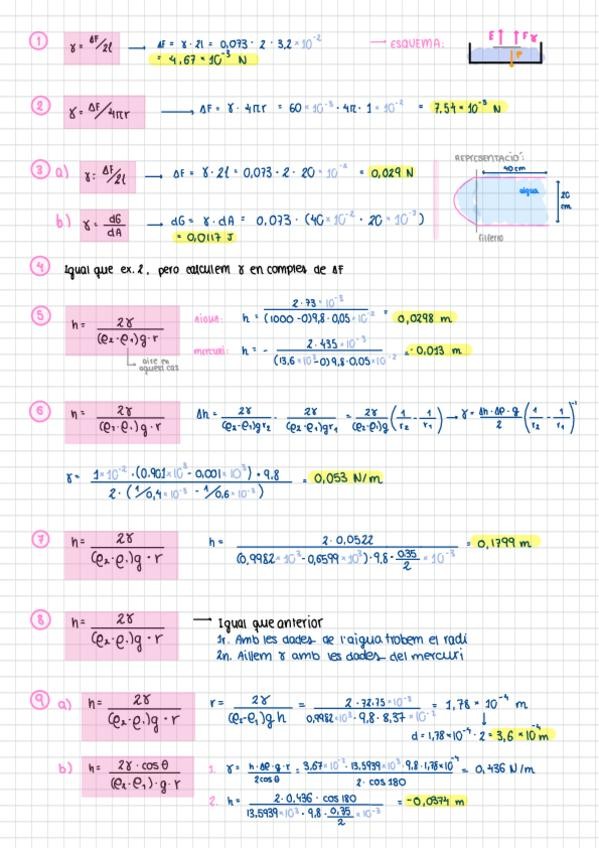 1 γ = ΔF/2l → ΔF = γ · 2l = 0,073 · 2 · 3,2 × 10⁻² → ESQUEMA: E Fγ
= 4,67 × 10⁻³ N P
2 γ = ΔF/4πr → ΔF = γ · 4πr = 60 × 10⁻³ · 4π · 1 × 10⁻² = 7,54 × 10⁻³ N
REPRESENTACIÓ:
3 a) γ = ΔF/2l → ΔF = γ · 2l = 0,073 · 2 · 20 × 10⁻² = 0,029 N
40 cm
aigua
20 cm
filferro
b) γ = dG/dA → dG = γ · dA = 0,073 · (40 × 10⁻² · 20 × 10⁻²)
= 0,0117 J
4 Igual que ex. 2, pero calculem γ en comptes de ΔF
5 h = 2γ/(ρ₂-ρ₁)g · r AIGUA: h = 2 · 73 × 10⁻³/(1000-0)9,8 · 0,05 × 10⁻² = 0,0298 m
aire en aquest cas
mercuri: h = - 2 · 435 × 10⁻³/(13,6 × 10³-0)9,8 · 0,05 × 10⁻² = -0,013 m
6 h = 2γ/(ρ₂-ρ₁)g · r Δh = 2γ/(ρ₂-ρ₁)gr₂ - 2γ/(ρ₂-ρ₁)gr₁ = 2γ/(ρ₂-ρ₁)g (1/r₂ - 1/r₁) → γ = Δh · Δρ · g/2 (1/r₂ - 1/r₁)⁻¹
γ = 1 × 10⁻² · (0,901 × 10³ - 0,001 × 10³) · 9,8/2 · (1/0,4 × 10⁻³ - 1/0,6 × 10⁻³) = 0,053 N/m
7 h = 2γ/(ρ₂-ρ₁)g · r h = 2 · 0,0522/(0,9982 × 10³ - 0,6599 × 10³) · 9,8 · 0,35/2 × 10⁻³ = 0,1799 m
8 h = 2γ/(ρ₂-ρ₁)g · r — Igual que anterior
1r. Amb les dades de l'aigua trobem el radi
2n. Aïllem γ amb les dades del mercuri
9 a) h = 2γ/(ρ₂-ρ₁)g · r r = 2γ/(ρ₂-ρ₁)gh = 2 · 72,75 × 10⁻³/0,9982 × 10³ · 9,8 · 8,37 × 10⁻² = 1,78 × 10⁻⁴ m
↓
d = 1,78 × 10⁻⁴ · 2 = 3,6 × 10⁻⁴ m
b) h = 2γ · cos θ/(ρ₂-ρ₁) · g · r 1. γ = h · Δρ · g · r/2cosθ = 3,67 × 10⁻² · 13,5939 × 10³ · 9,8 · 1,78 × 10⁻⁴/2 · cos 180 = 0,436 N/m
2. h = 2 · 0,436 · cos 180/13,5939 × 10³ · 9,8 · 0,35/2 × 10⁻³ = -0,0374 m